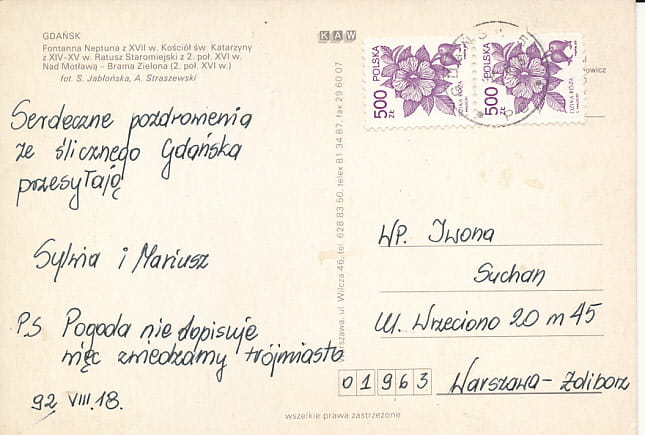 GDAŃSK
Fontanna Neptuna z XVII w. Kościół św. Katarzyny
z XIV-XV w. Ratusz Staromiejski z 2. poł. XVI w.
Nad Motławą – Brama Zielona (2. poł. XVI w.)
fot. S. Jabłońska, A. Straszewski
Serdeczne pozdrowienia
ze ślicznego Gdańska
przesyłają
Sylwia i Mariusz
PS Pogoda nie dopisuje
więc zwiedzamy trójmiasto
92 VIII.18.
KAW
ul. Wilcza 46, tel. 628 83 50, telex 81 34 87, fax 29 60 07
POLSKA
500 ZŁ
DZIKA RÓŻA
POLSKA
500 ZŁ
DZIKA RÓŻA
WP. Iwona
Suchan
Ul. Wrzeciono 20 m 45
01963 Warszawa – Żoliborz
wszelkie prawa zastrzeżone